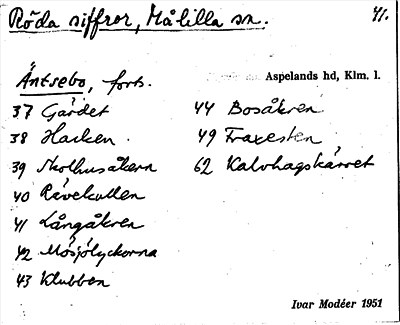 Röda siffror, Målilla sn. 41.
Aspelands hd, Klm. l.
Äntsebo, forts.
37 Gärdet
38 Hacken
39 Stolhusåkern
40 Rävekullen
41 Långåkren
42 Mosjölyckorna
43 Klubben
44 Bosåkren
49 Fraxesten
62 Kalvhagskärret
Ivar Modéer 1951